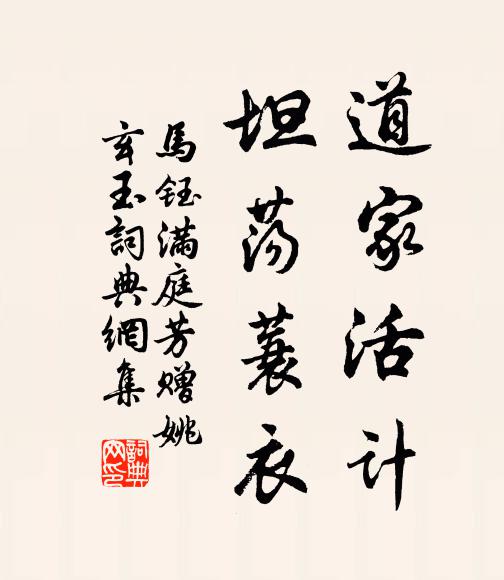 道家活计
坦荡蓑衣
馬鈺滿庭芳赠姚
玄玉詞典網集
詞典網印